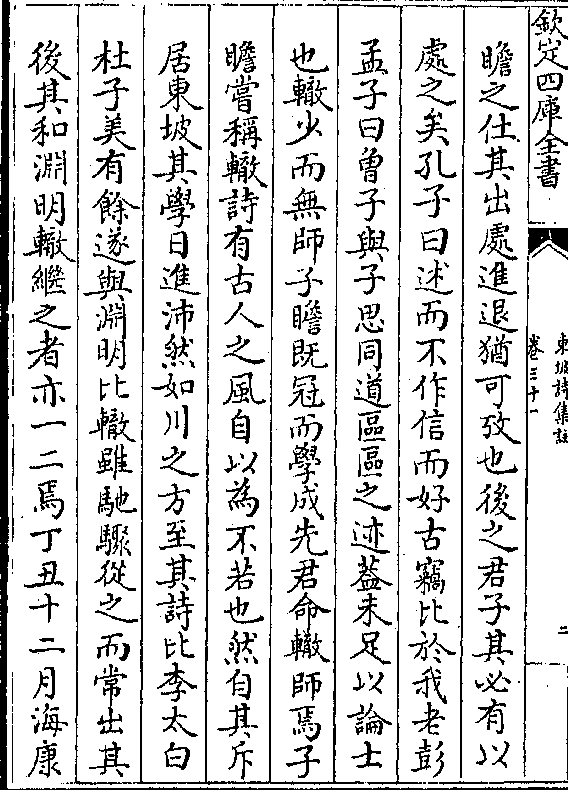 欽定四庫全書
東坡詩集註
卷三十一
二
瞻之仕其出處進退猶可攷也後之君子其必有以
處之矣孔子曰述而不作信而好古竊比於我老彭
孟子曰曾子與子思同道區區之迹葢未足以論士
也轍少而無師子瞻既冠而學成先君命轍師焉子
瞻嘗稱轍詩有古人之風自以為不若也然自其斥
居東坡其學日進沛然如川之方至其詩比李太白
杜子美有餘遂與淵明比轍雖馳驟從之而常出其
後其和淵明轍繼之者亦一二焉丁丑十二月海康